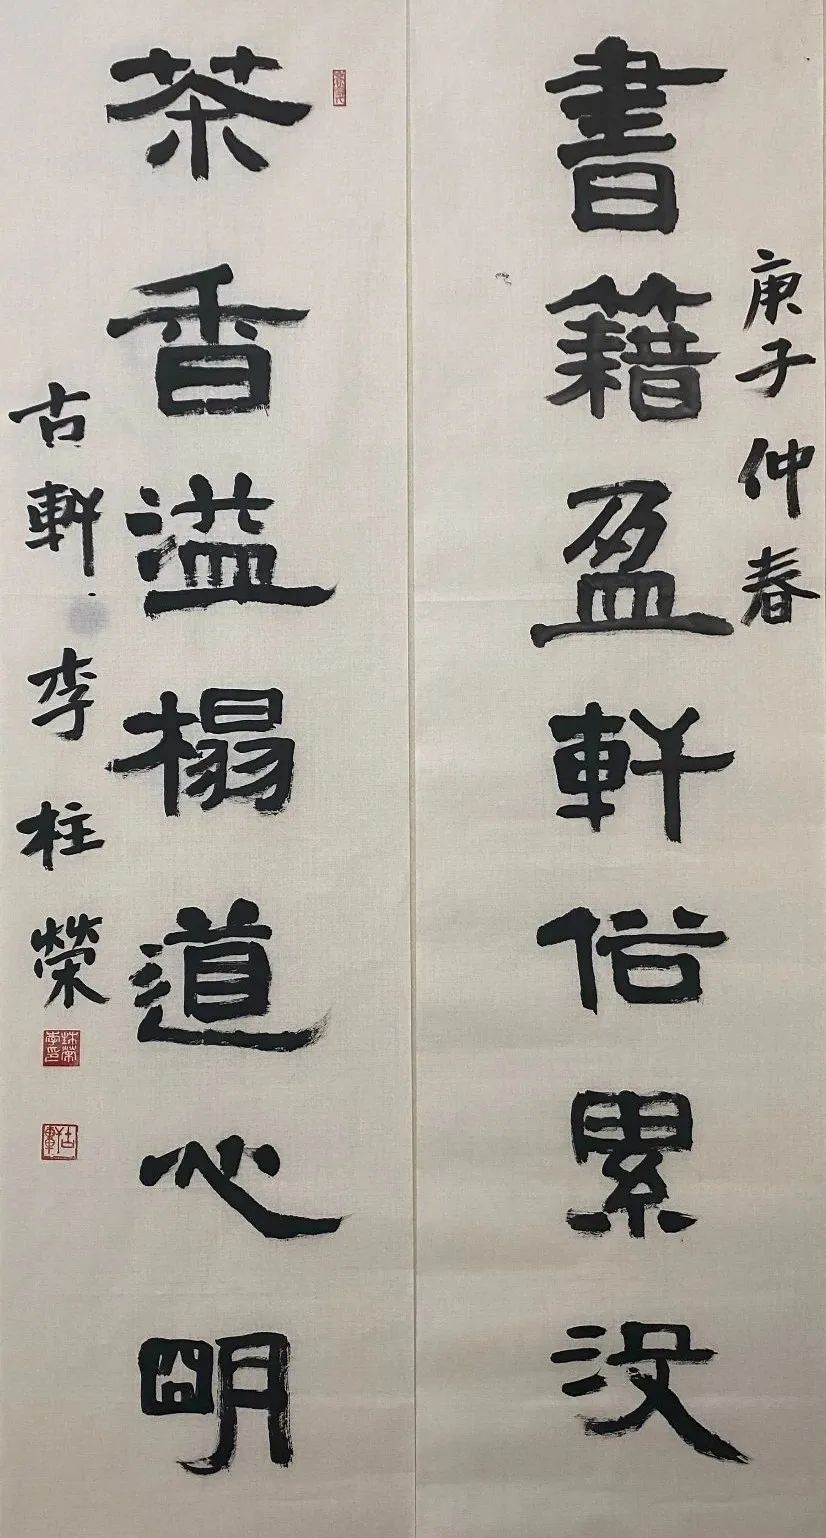 庚子仲春
書籍盈軒俗累沒
茶香溢榻道心明
古軒李柱榮